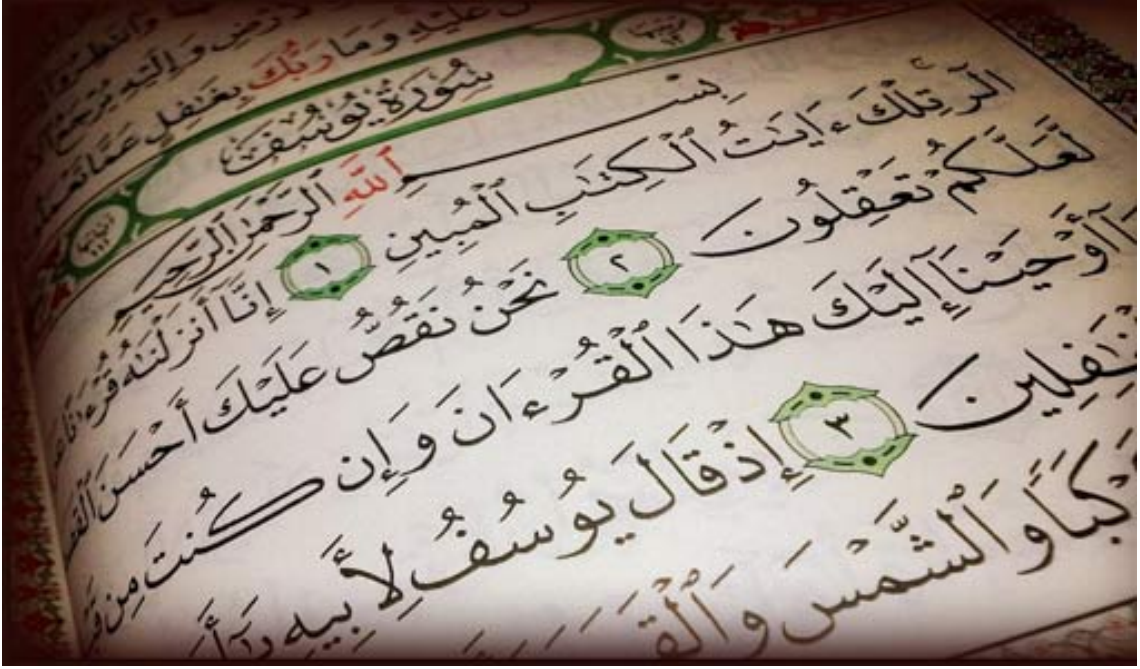 وَإِلَيْهِ يُرْجَعُ
عَلَيْهِ وَمَا رَبُّكَ بِغَٰفِلٍ عَمَّا
سُورَةُ يُوسُفَ
بِسْمِ ٱللَّهِ ٱلرَّحْمَٰنِ ٱلرَّحِيمِ
الٓر تِلْكَ ءَايَٰتُ ٱلْكِتَٰبِ ٱلْمُبِينِ ١ إِنَّآ أَنزَلْنَٰهُ قُرْءَٰنًا
لَّعَلَّكُمْ تَعْقِلُونَ ٢ نَحْنُ نَقُصُّ عَلَيْكَ أَحْسَنَ
أَوْحَيْنَآ إِلَيْكَ هَٰذَا ٱلْقُرْءَانَ وَإِن كُنتَ مِن
ٱلْغَٰفِلِينَ ٣ إِذْ قَالَ يُوسُفُ لِأَبِيهِ
وَٱلشَّمْسَ